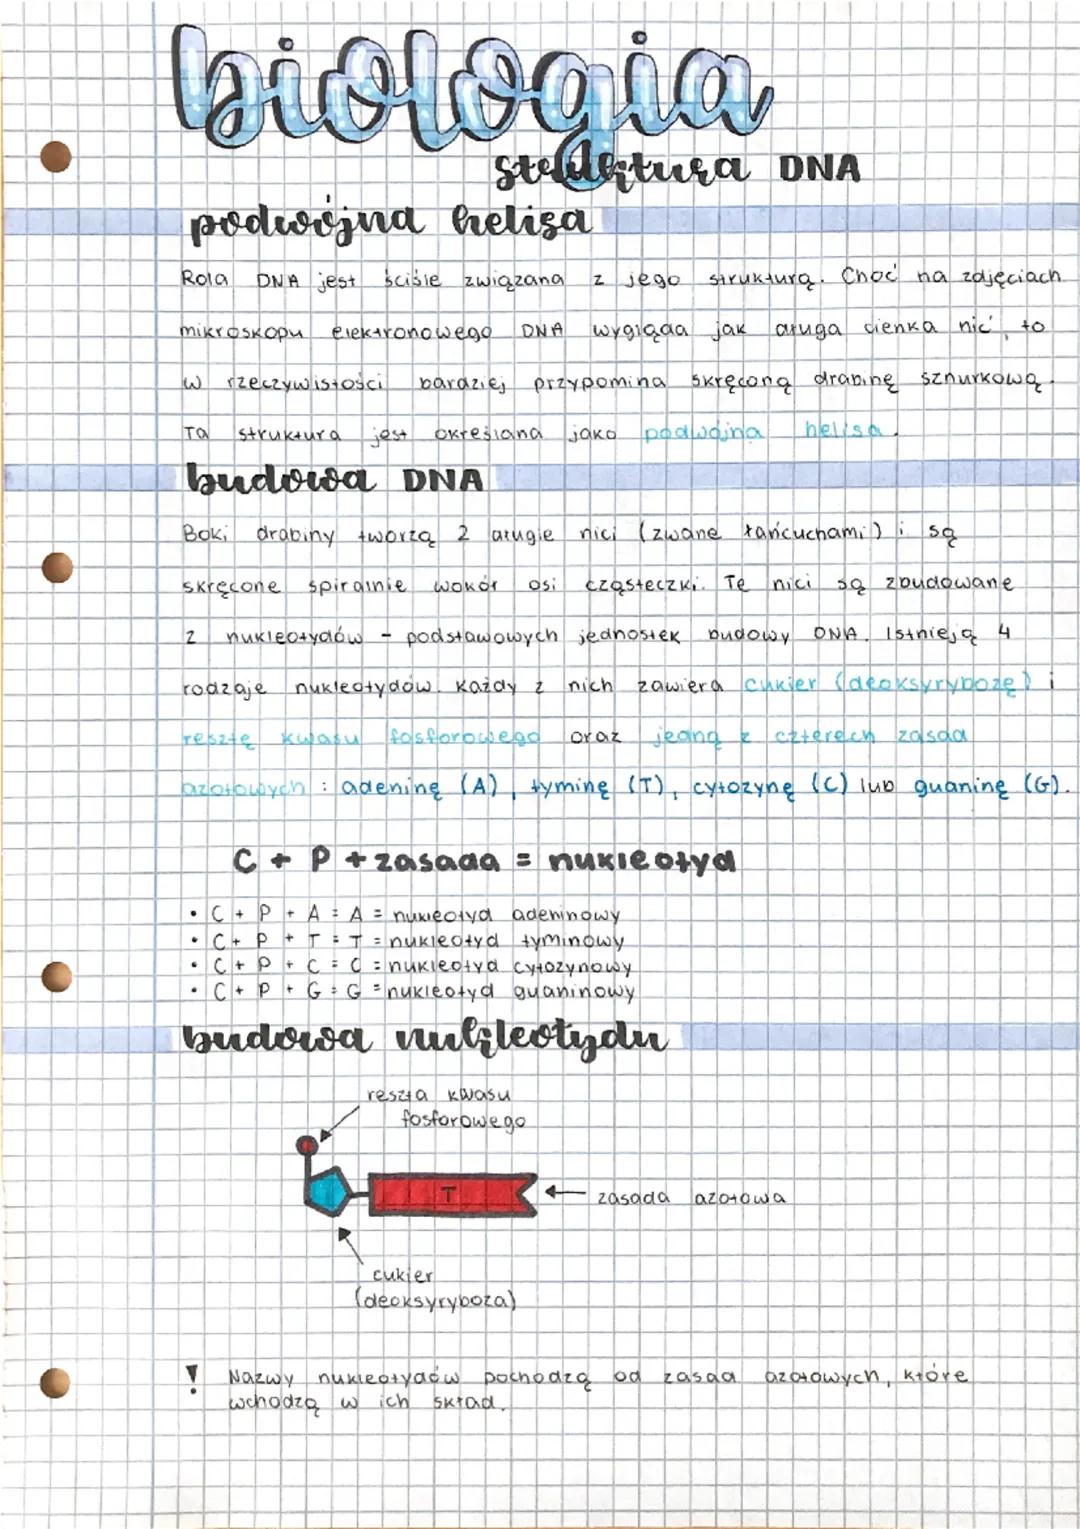 biologia
struktura DNA
podwójna helisa
Rola DNA jest ściśle związana z jego strukturą. Choć na zdjęciach
mikroskopu elektronowego DNA wygląda jak długa cienka nić, to
w rzeczywistości bardziej przypomina skręconą drabinę sznurkową.
Ta struktura jest określana jako podwójna helisa.
budowa DNA
Boki drabiny tworzą 2 długie nici (zwane łańcuchami) i są
skręcone spiralnie wokół osi cząsteczki. Te nici są zbudowane
z nukleotydów - podstawowych jednostek budowy DNA. Istnieją 4
rodzaje nukleotydów. Każdy z nich zawiera cukier (deoksyrybozę) i
resztę kwasu fosforowego oraz jedną z czterech zasad
azotowych : adeninę (A), tyminę (T), cytozynę (C) lub guaninę (G).
C + P + zasada = nukleotyd
• C + P + A = A = nukleotyd adeninowy
• C + P + T = T = nukleotyd tyminowy
• C + P + C = C = nukleotyd cytozynowy
• C + P + G = G = nukleotyd guaninowy
budowa nukleotydu
reszta kwasu
fosforowego
T
zasada azotowa
cukier
(deoksyryboza)
! Nazwy nukleotydów pochodzą od zasad azotowych, które
wchodzą w ich skład.